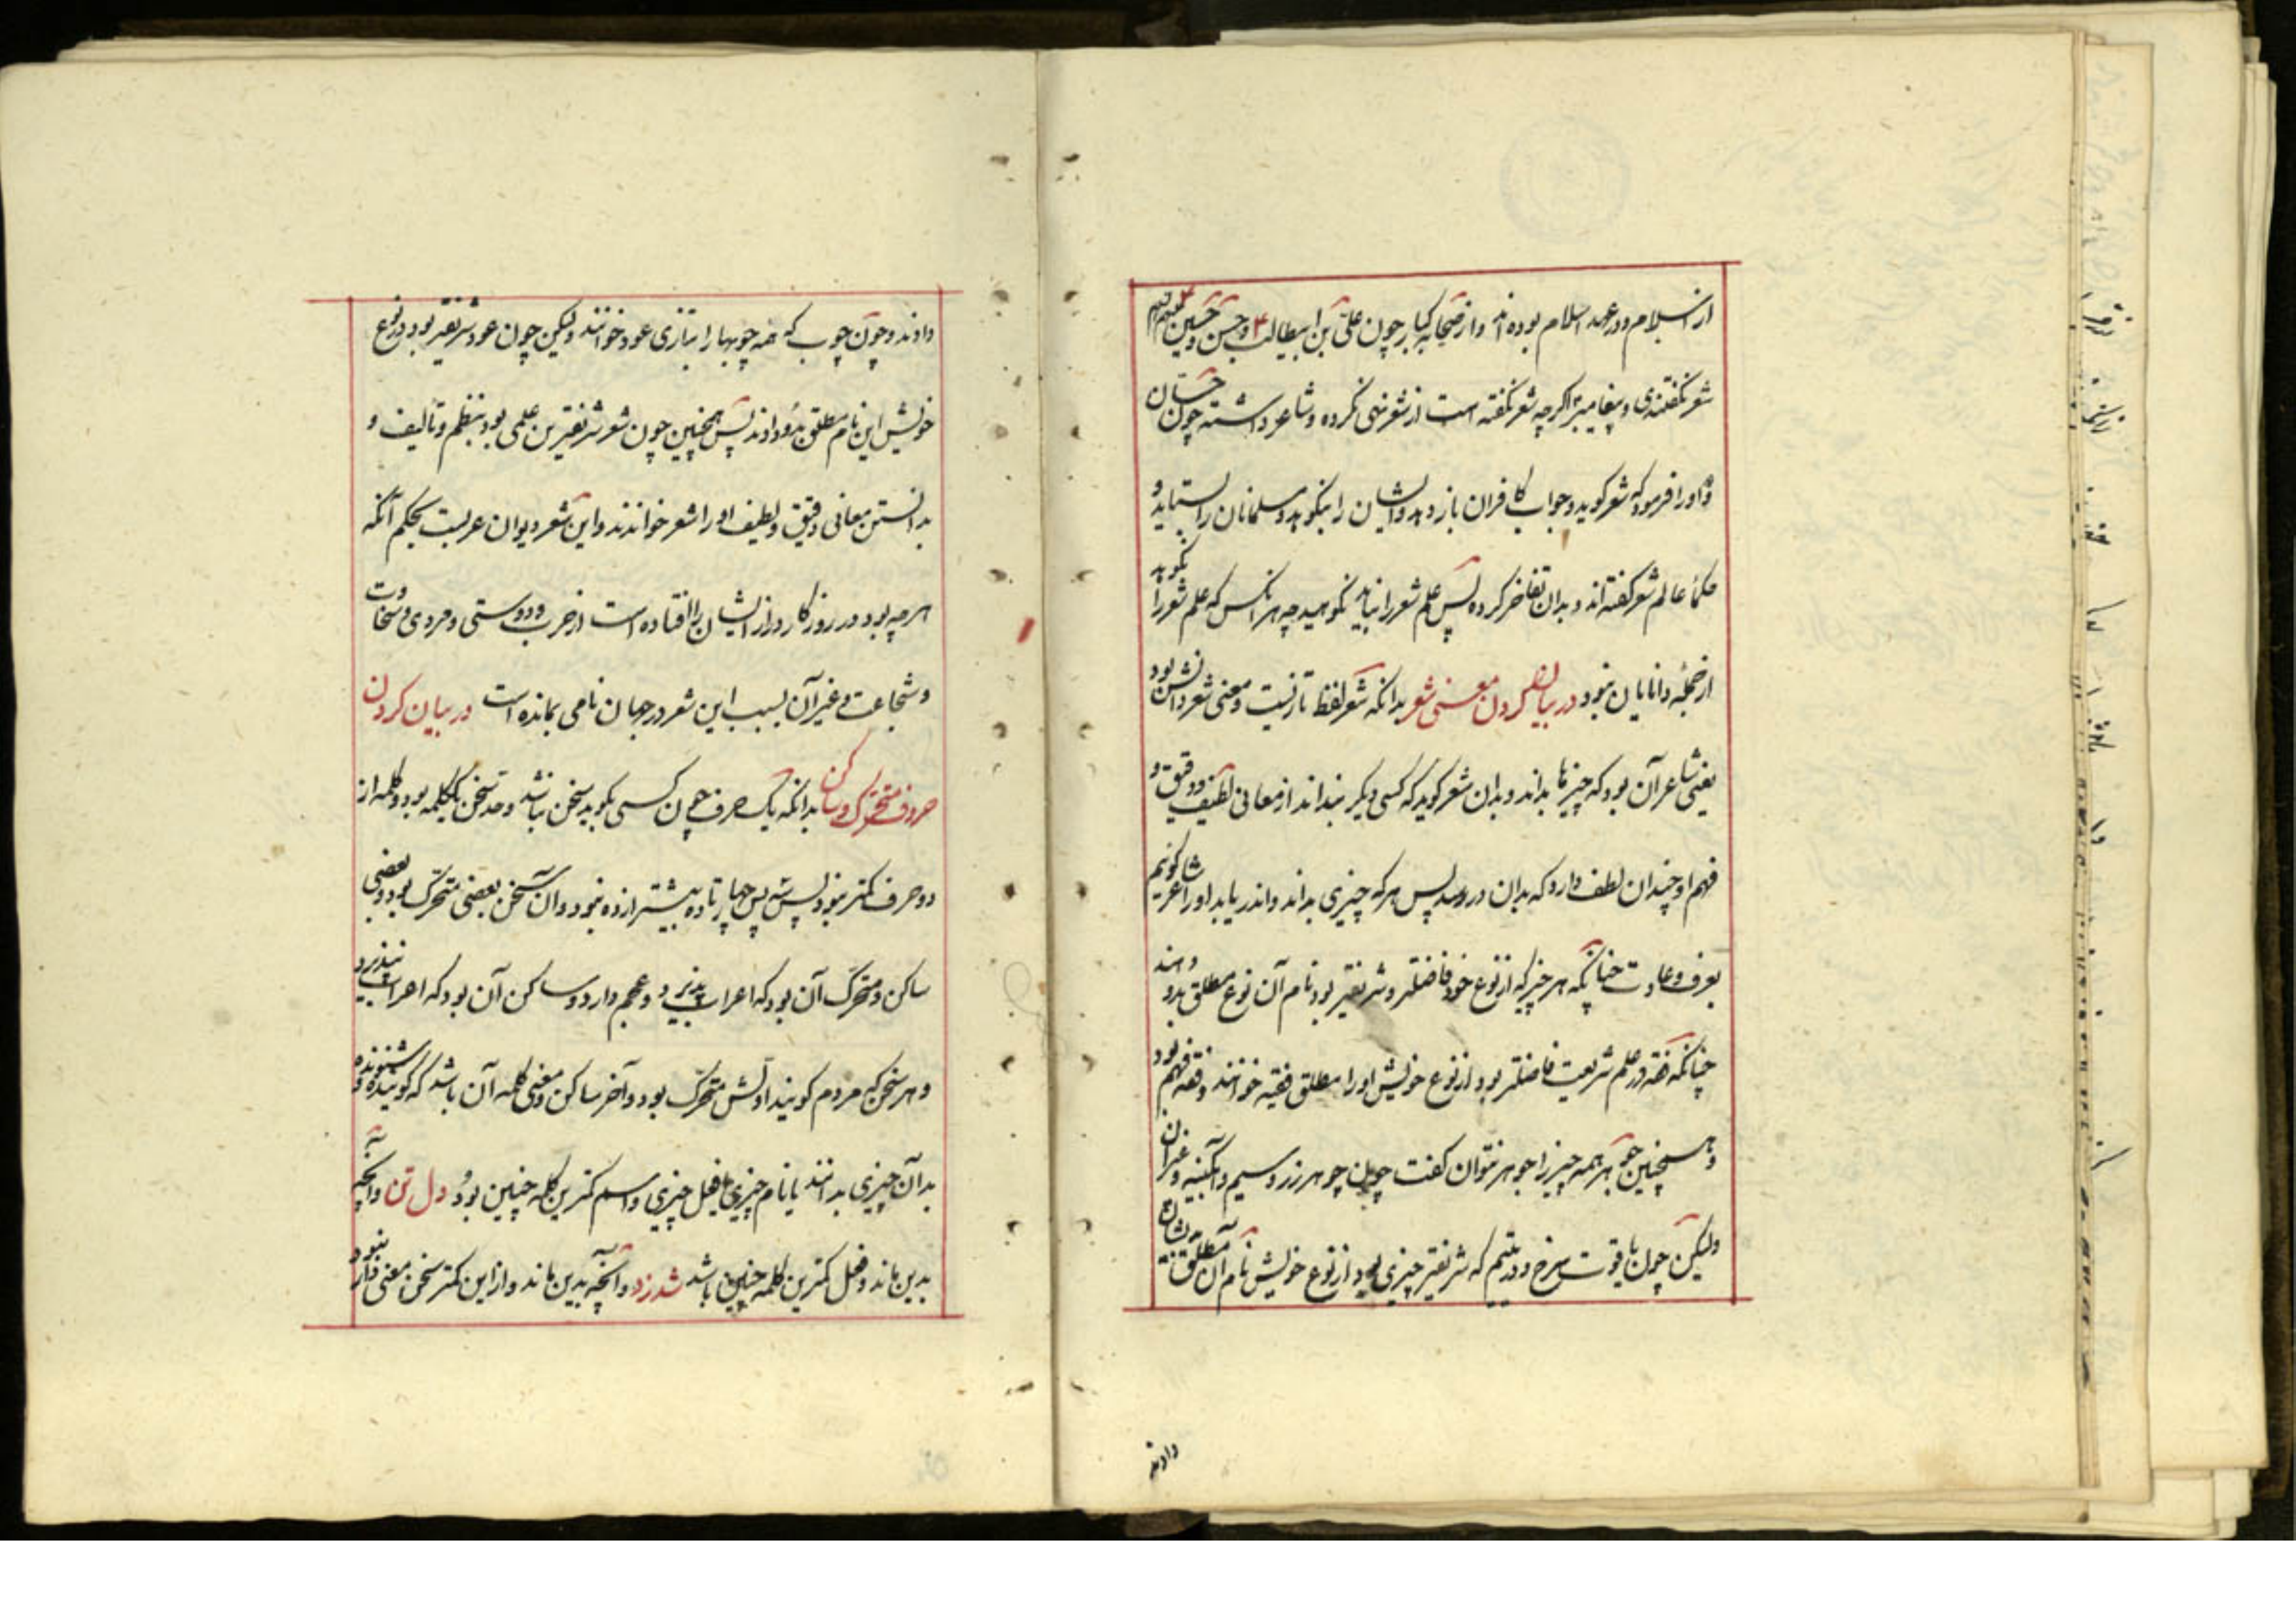 از اسلام و در عهد اسلام بوده اند و از صحابه کبار چون علی بن ابیطالب ع و حسن و حسین علیهم
شعر نگفتندی و پیغامبر اگرچه شعر نگفته است از شعر نهی نکرده و شاعر داشته چون حسّان
و او را فرمود که شعر گوید و جواب کافران باز دهد و ایشان را بنکوهد و مسلمانان را بستاید و
حکماء عالم شعر گفته اند و بدان تفاخر کرده پس علم شعر را نباید نکوهید چه هر آنکس که علم شعر را نکوهد
از جمله دانایان نبود در بیان کردن معنی شعر بدانکه شعر لفظ تازیست و معنی شعر دانش بود
یعنی شاعر آن بود که چیزها بداند و بدان شعر گوید که کسی دیگر نداند از معانی لطیف و دقیق و
فهم او چندان لطف دارد که بدان در رسد پس هر که چیزی بداند و اندر یابد او را شاعر گوئیم
بعرف و عادت چنانکه هر چیز که از نوع خود فاضلتر و شریفتر بود نام آن نوع مطلق بدو دهند
چنانکه فقه در علم شریعت فاضلتر بود از نوع خویش او را مطلق فقیه خوانند و فقه فهم بود
و همچنین جوهر همه چیز را جوهر نتوان گفت چون جوهر زر و سیم و آبگینه و غیر آن
ولیکن چون یاقوت سرخ و در یتیم که شریفتر چیزی بود از نوع خویش نام آن مطلق بدیشان
دادند
دادند و چون چوب که همه چوبها را بتازی عود خوانند ولیکن چون عود شریفتر بود در نوع
خویش این نام مطلق بدو دادند پس همچنین چون شعر شریفترین علمی بود بنظم و تألیف و
بدانستن معانی دقیق و لطیف او را شعر خواندند و این شعر دیوان عربست بحکم آنکه
هر چه بود در روزگار دراز ایشان را افتاده است از حرب و دوستی و مردی و سخاوت
و شجاعت و غیر آن بسبب این شعر در جهان نامی بمانده است در بیان کردن
حروف متحرک و ساکن بدانکه یک حرف چون کسی بگوید سخن نباشد و حد سخن یک کلمه بود و کلمه از
دو حرف کمتر نبود پس سه پس چهار تا ده بیشتر از ده نبود و آن سخن بعضی متحرک بود و بعضی
ساکن و متحرک آن بود که اعراب پذیرد و عجم دارد و ساکن آن بود که اعراب نپذیرد
و هر سخن که مردم گویند اولش متحرک بود و آخر ساکن و معنی کلمه آن باشد که گوینده و شنونده
بدان چیزی بدانند یا نام چیزی یا فعل چیزی و اسم کمترین کلمه چنین بود دل تن و آنچه
بدین ماند و فعل کمترین کلمه چنین باشد شد زد و آنچه بدین ماند و از این کمتر سخن معنی دار نبود